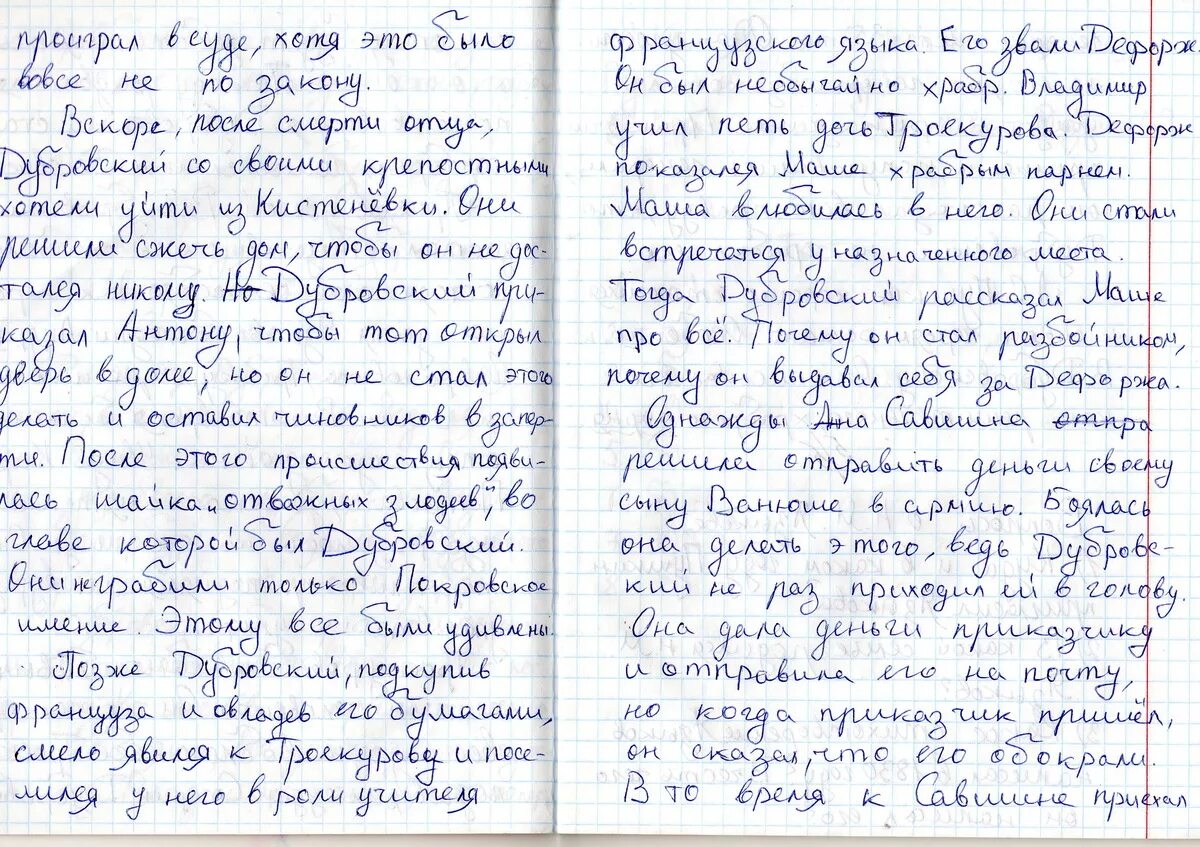 проиграл в суде, хотя это было
вовсе не по закону.
Вскоре, после смерти отца,
Дубровский со своими крепостными
хотели уйти из Кистенёвки. Они
решили сжечь дом, чтобы он не дос-
тался никому. Но Дубровский при-
казал Антону, чтобы тот открыл
дверь в доме, но он не стал этого
делать и оставил чиновников взапер-
ти. После этого происшествия появи-
лась шайка „отважных злодеев", во
главе которой был Дубровский.
Они не грабили только Покровское
имение. Этому все были удивлены.
Позже Дубровский, подкупив
француза и овладев его бумагами,
смело явился к Троекурову и посе-
лился у него в роли учителя
французского языка. Его звали Дефорж.
Он был необычайно храбр. Владимир
учил петь дочь Троекурова. Дефорж
показался Маше храбрым парнем.
Маша влюбилась в него. Они стали
встречаться у назначенного места.
Тогда Дубровский рассказал Маше
про всё. Почему он стал разбойником,
почему он выдавал себя за Дефоржа.
Однажды Ана Савишна отпра
решила отправить деньги своему
сыну Ванюше в армию. Боялась
она делать этого, ведь Дубровс-
кий не раз приходил ей в голову.
Она дала деньги приказчику
и отправила его на почту,
но когда приказчик пришёл,
он сказал, что его обокрали.
В то время к Савишне приехал